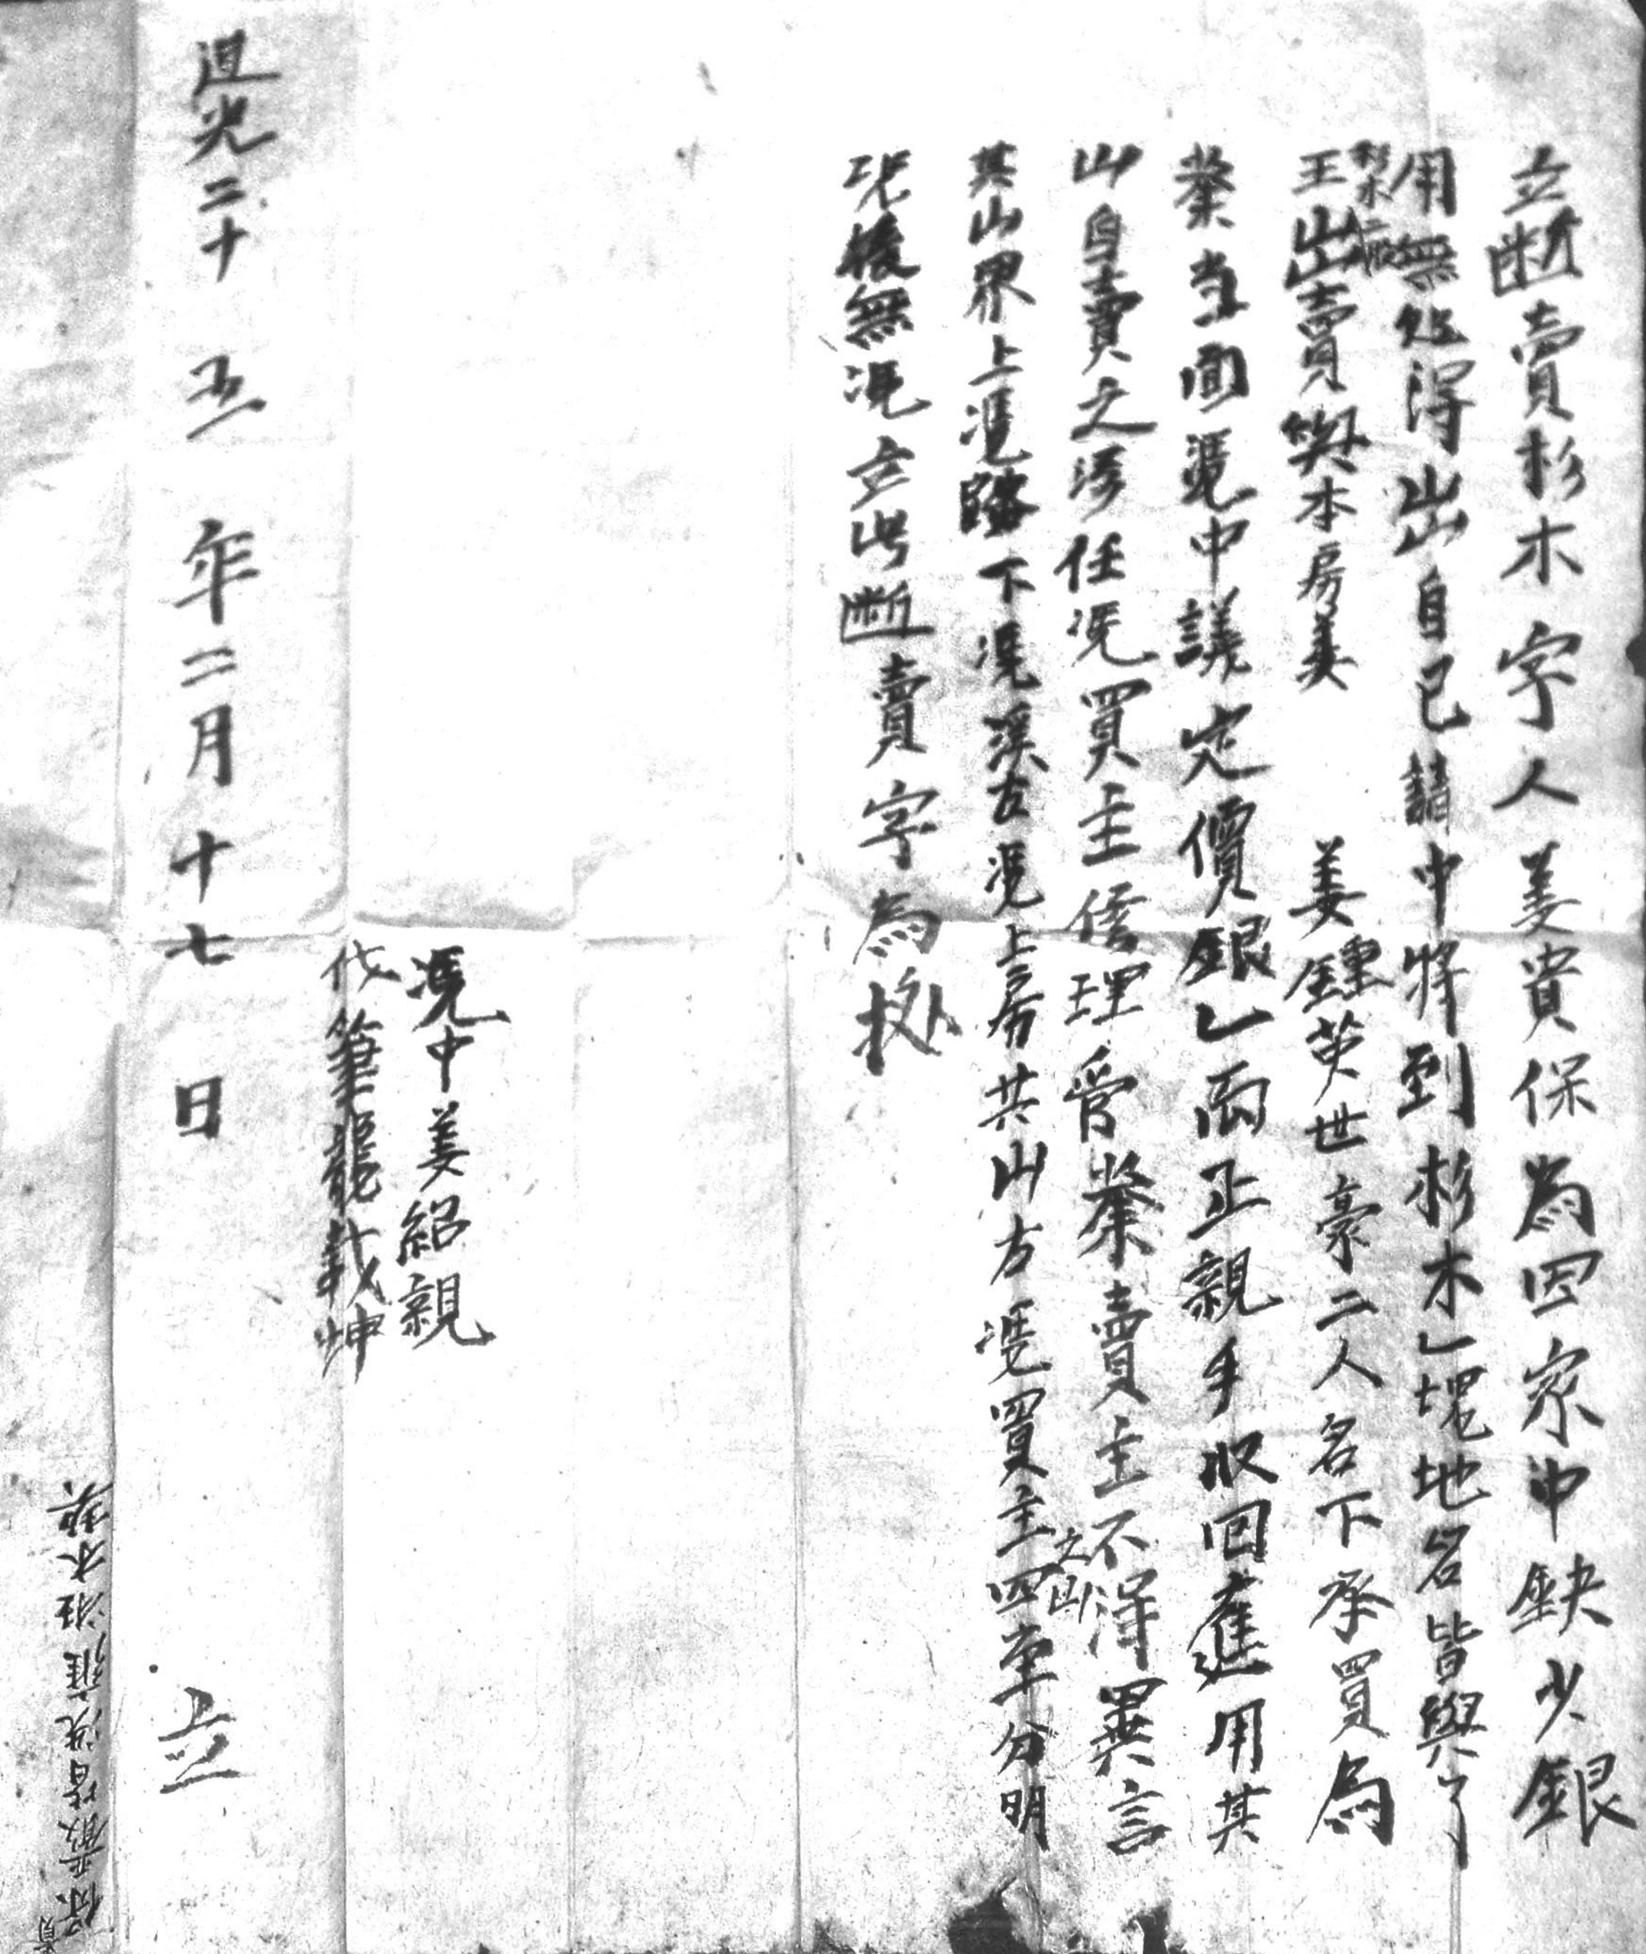 立断賣杉木字人姜貴保為因家中缺少銀
用無処得出自己請中將到杉木乚塊地名皆與了
王出賣與本房姜 姜鍾英世豪二人名下承買為
業当面凴中議定價銀乚両正親手収回應用其
山自賣之後任凴買主修理管業賣主不淂異言
其山界上凴路下凴溪左凴上房共山右凴買主之山四至分明
恐後無凴立此断賣字為拠
凴中姜紹親
代筆龍載坤
道光二十五年二月十七日 立